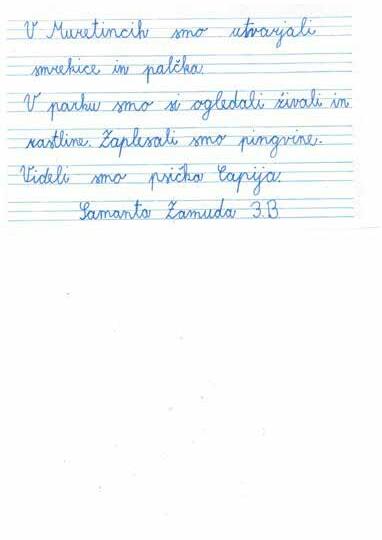 V Muretincih smo utvarjali
smrekice in palčka.
V parku smo si ogledali živali in
rastline. Zaplesali smo pingvine.
Videli smo psička Capija.
Samanta Zamuda 3.B